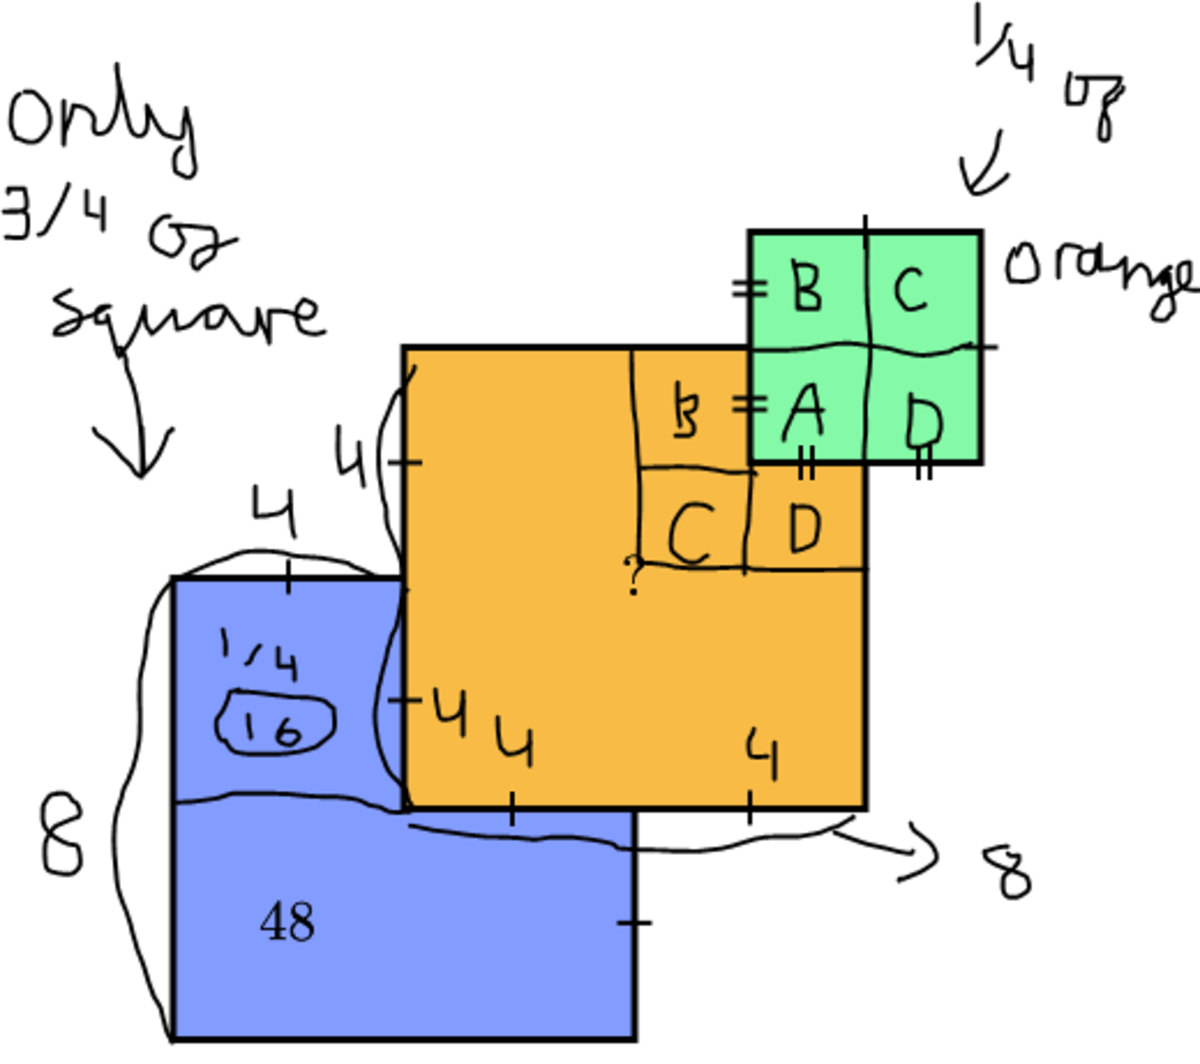 only
3/4 of
square
1/4 of
orange
B C
A D
B
C D
?
4
4
1/4
16
4
4
4
8
8
48